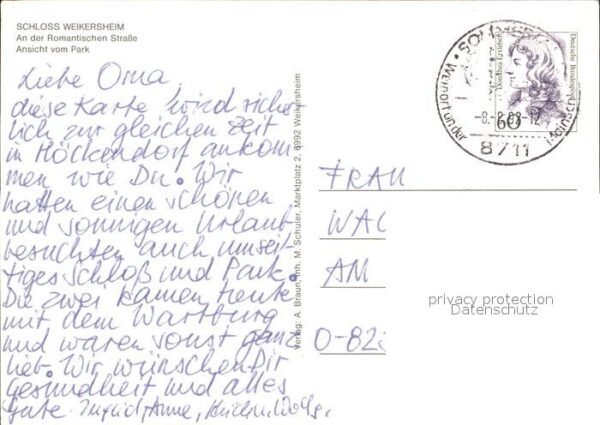 SCHLOSS WEIKERSHEIM
An der Romantischen Straße
Ansicht vom Park
Liebe Oma,
diese Karte wird sicher
lich zur gleichen Zeit
in Höckendorf ankom
men wie Du. Wir
hatten einen schönen
und sonnigen Urlaub
besuchten auch umsei-
tiges Schloß und Park.
Die zwei kamen heute
mit dem Wartburg
und waren sonst ganz
lieb. Wir wünschen Dir
Gesundheit und alles
Gute.
Verlag: A. Braun, Inh. M. Schuler, Marktplatz 2, 6992 Weikersheim
Deutsche Bundespost
Dorothea Erxleben
60
Weinort an der
8711
FRAU
WAL
AM
O-82
privacy protection
Datenschutz